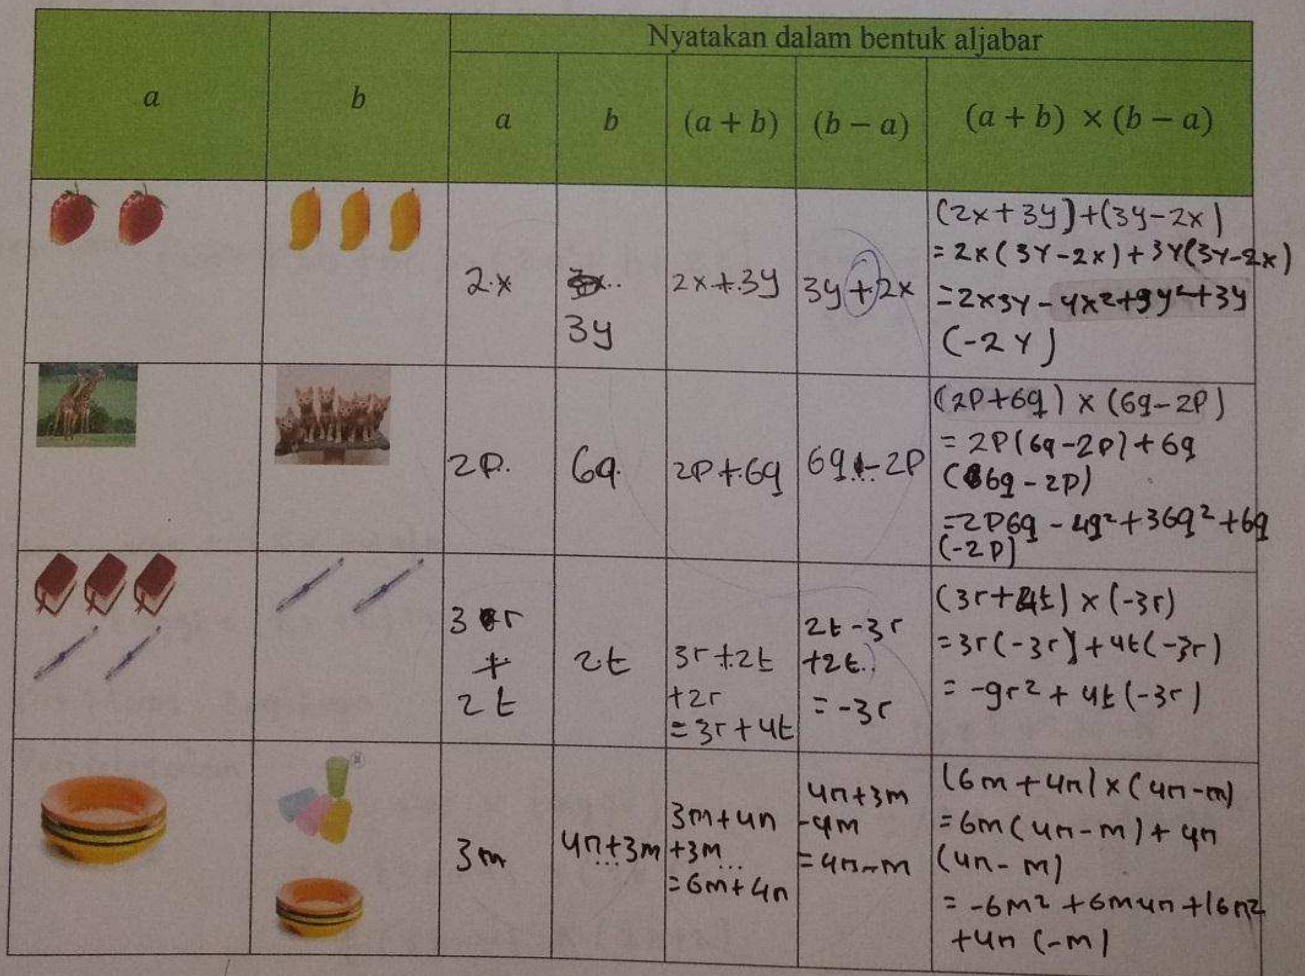 Nyatakan dalam bentuk aljabar
a
b
a
b
(a + b)
(b − a)
(a + b) × (b − a)
2x
3y
2x+3y
3y+2x
(2x+3y)+(3y-2x)
=2x(3y-2x)+3y(3y-2x)
=2x3y-4x²+9y²+3y
(-2y)
2p.
6q.
2p+6q
6q-2p
(2p+6q) x (6q-2p)
=2p(6q-2p)+6q
(6q-2p)
=2p6q-4q²+36q²+6q
(-2p)
3r
+
2t
2t
3r+2t
+2r
=3r+4t
2t-3r
+2t..
=-3r
(3r+4t) x (-3r)
=3r(-3r)+4t(-3r)
= -9r²+4t(-3r)
3m
4n+3m
3m+4n
+3m
=6m+4n
4n+3m
-4m
=4n-m
(6m+4n) x (4n-m)
=6m(4n-m)+4n
(4n-m)
= -6m²+6m4n+16n²
+4n (-m)